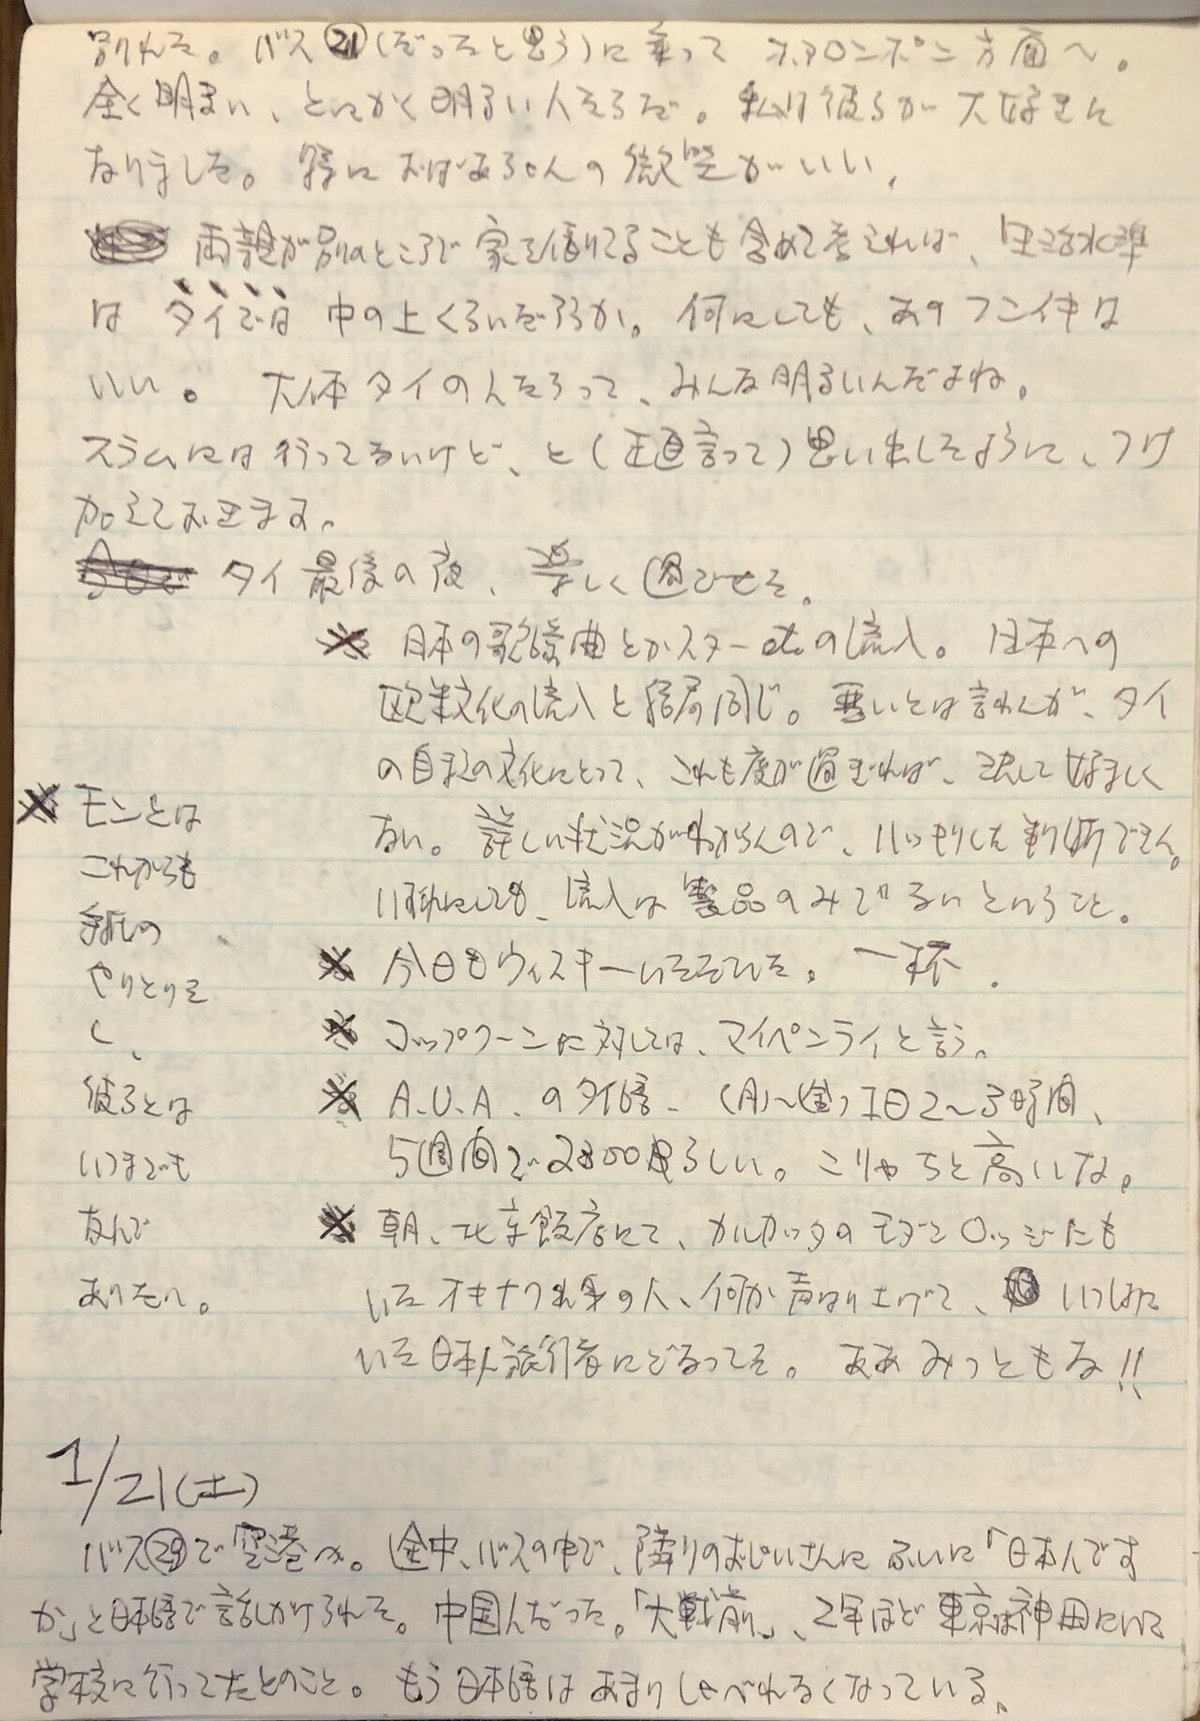 別れた。バス㉑(だったと思う)に乗って ホアロンポン方面へ。
全く明るい、とにかく明るい人たちだ。私は彼らが大好きに
なりました。特におばあちゃんの微笑がいい。
両親が別のところで家を借りてることも含めて考えれば、生活水準
は タイでは 中の上くらいだろうか。何にしても、あのフンイキは
いい。 大体タイの人たちって、みんな明るいんだよね。
スラムには行ってないけど、と(正直言って)思い出したように、つけ
加えておきます。
タイ最後の夜、楽しく過ごせた。
※ 日本の歌謡曲とかスターetc.の流入。日本への
欧米文化の流入と結局同じ。悪いとは言わんが、タイ
の自国の文化にとって、これも度が過ぎれば、決して好ましく
ない。詳しい状況がわからんので、はっきりした判断できん。
いずれにしても、流入は製品のみでないということ。
※ 今日もウィスキーいただいた。一杯.
※ コップクーンに対しては、マイペンライと言う。
※ A.U.A.のタイ語. (月)〜(金) 1日2〜3時間、
5週間で2800Bらしい。こりゃちと高いな。
※ 朝、北京飯店にて、カルカッタのモダンロッジにも
いたオキナワ出身の人、何か声はり上げて、いっしょに
いた日本人旅行者にどなってた。ああみっともな!!
※ モンとは
これからも
手紙の
やりとりを
し、
彼らとは
いつまでも
友人で
ありたい。
1/21(土)
バス㉙で空港へ。途中、バスの中で、隣りのおじいさんに ふいに「日本人です
か」と日本語で話しかけられた。中国人だった。「大戦前」、2年ほど東京は神田にいて
学校に行ってたとのこと。もう日本語はあまりしゃべれなくなっている。